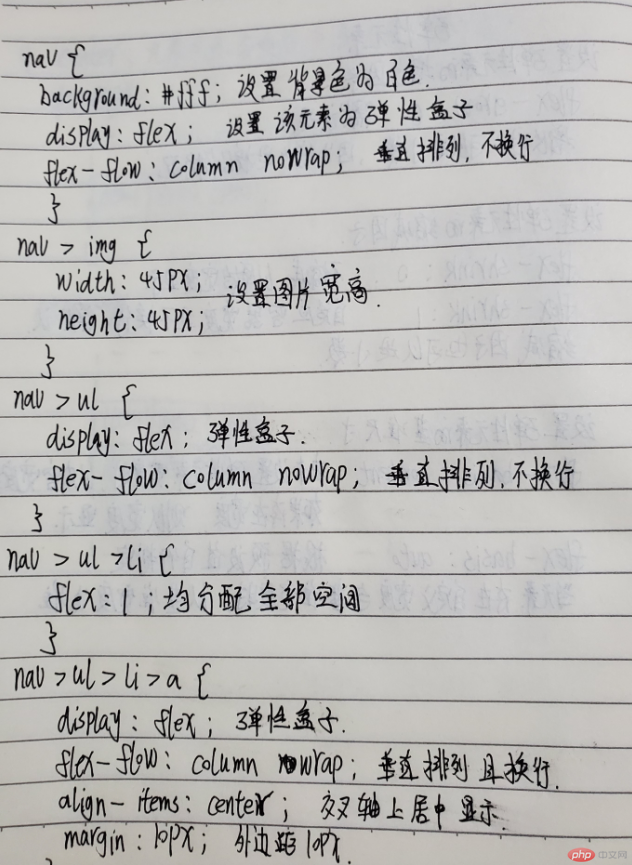 nav {
background: #fff; 设置背景色为白色.
display: flex; 设置该元素为弹性盒子
flex-flow: column nowrap; 垂直排列, 不换行
}
nav > img {
width: 45px; 设置图片宽高.
height: 45px;
}
nav > ul {
display: flex; 弹性盒子.
flex-flow: column nowrap; 垂直排列, 不换行
}
nav > ul > li {
flex: 1; 均分配全部空间
}
nav > ul > li > a {
display: flex; 弹性盒子.
flex-flow: column nowrap; 垂直排列且换行.
align-items: center; 交叉轴上居中显示.
margin: 10px; 外边距10px.
}
php 中文网